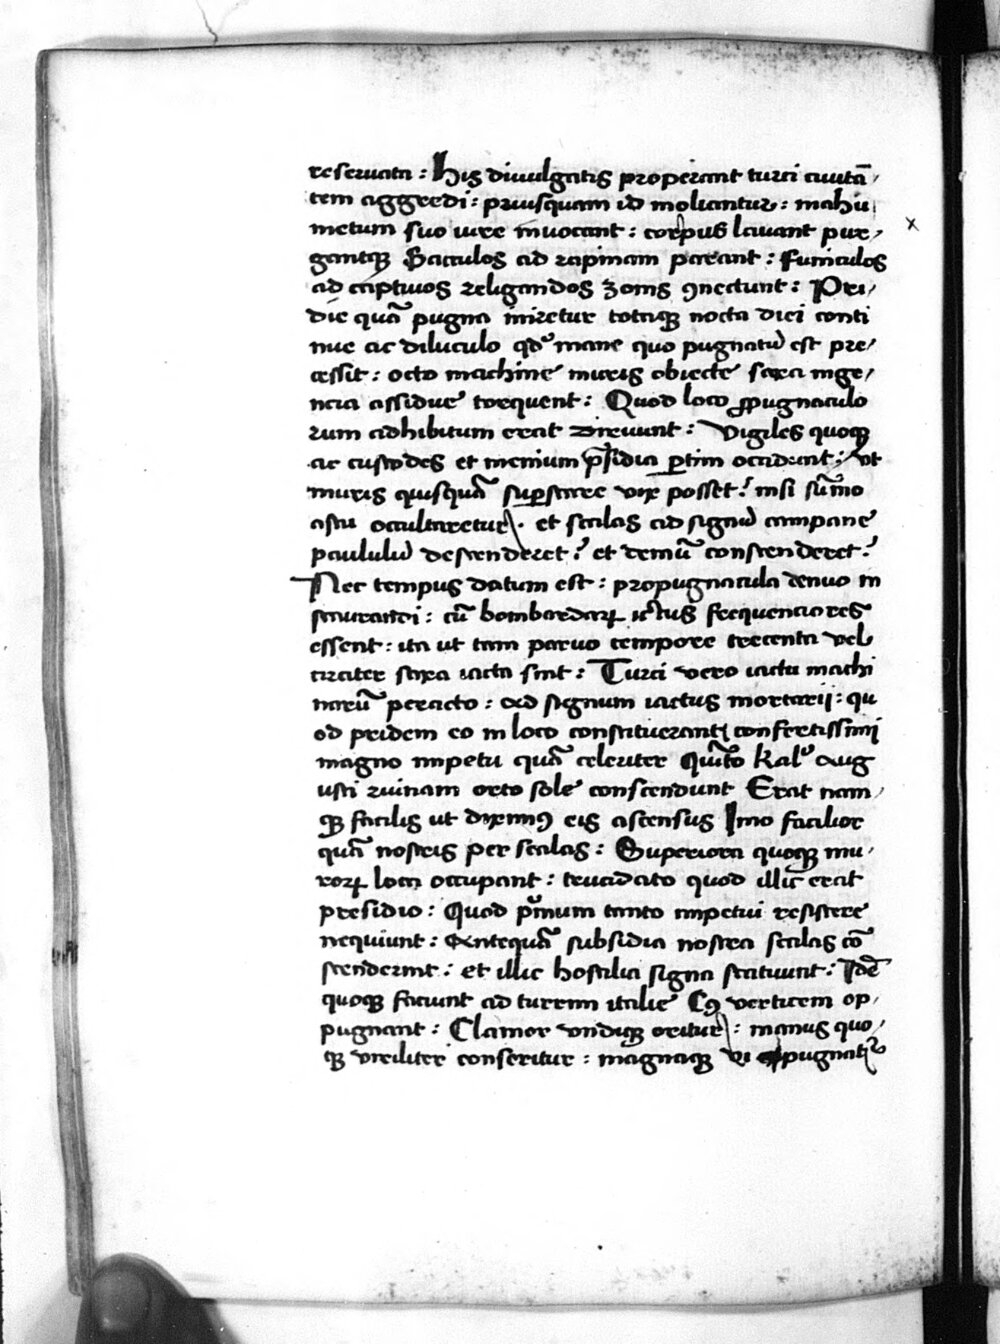 reseruata : His diuulgatis properant turci ciuitā
tem aggredi : priusquam id moliantur : mahu
metum suo iure inuocant : corpus lauant pur
gantqꝫ Sacculos ad rapinam parant : funiculos
ad captiuos religandos zonis ꝯnectunt : Pri
die quā pugna iniretur totaqꝫ nocta diei conti
nue ac diluculo qd mane quo pugnatū est pre
cessit : octo machine muris obiecte saxa inge
ncia assidue torquent : Quod loco ꝓpugnaculo
rum adhibitum erat diruunt : Vigiles quoqꝫ
ac custodes et menium p̄sidia ꝑtim occidunt : Vt
muris quisquā suꝑstare vix posset : nisi sūmo
astu occultaretur . et scalas ad signū campane
paululū descenderet : et demū conscenderet :
Nec tempus datum est : propugnacula denuo in
staurandi : cū bombardarꝝ ictus frequenciores
essent : ita ut tam paruo tempore trecenta vel
circiter saxa iacta sint : Turci vero iactu machi
narū peracto : ad signum iactus mortarij : qu
od pridem eo in loco constituerant confertissimi
magno impetu quā celeriter Quīto Kal Aug
usti ruinam orto sole conscendunt Erat nam
qꝫ facilis ut diximꝰ eis ascensus Imo facilior
quā nostris per scalas : Superiora quoqꝫ mu
rorꝝ loca occupant : trucidato quod illic erat
presidio : Quod pͥmum tanto impetui resistere
nequiunt : Antequā subsidia nostra scalas cō
scenderint : et illic hostilia signa statuunt : Idē
quoqꝫ faciunt ad turrim italie Cꝰ verticem op
pugnant : Clamor vndiqꝫ oritur : manus quo
qꝫ viriliter conseritur : magnaqꝫ vi pugnatͬ